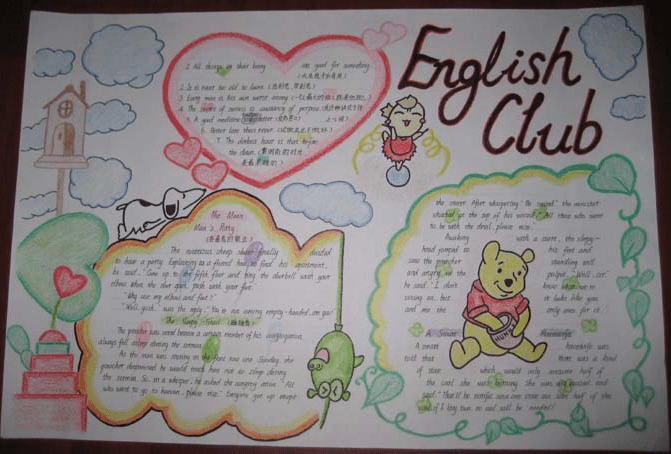 English
Club
1. All things in their being are good for something.
2. It is never too old to learn.
3. Every man is his own worst enemy.
4. The secret of success is constancy of purpose.
5. A good medicine tastes bitter
6. Better late than never.
7. The darkest hour is that before
the dawn.
The Mean
Man's Party
The notorious cheap skate finally decided
to have a party. Explaining to a friend how to find his apartment,
he said, "Come up to the fifth floor and ring the doorbell with your
elbow. When the door open, push with your foot."
"Why use my elbow and foot?"
"Well, gosh," was the reply, "You're not coming empty-handed, are you?"
The Sleepy
The preacher was vexed because a certain member of his congregation
always fell asleep during the sermon.
As the man was snoring in the front row one Sunday, the
preacher determined he would teach him not to sleep during
the sermon. So, in a whisper, he asked the congregation, "All
who want to go to heaven, please rise." Everyone got up except
the snorer. After whispering "Be seated," the minister
shouted at the top of his voice, "All those who want
to be with the devil, please rise."
Awaking with a start, the sleepy-
head jumped to his feet and
saw the preacher standing tall
and angry in the pulpit. "Well, sir,"
he said, "I don't know what we're
voting on, but it looks like you
and me are the only ones for it."
A Smart Housewife
A smart housewife was
told that there was a kind
of stove which would only consume half of
the coal she was burning. She was very excited, and
said, "That'll be terrific! Since one stove can save half of the
coal, if I buy two, no coal will be needed!"